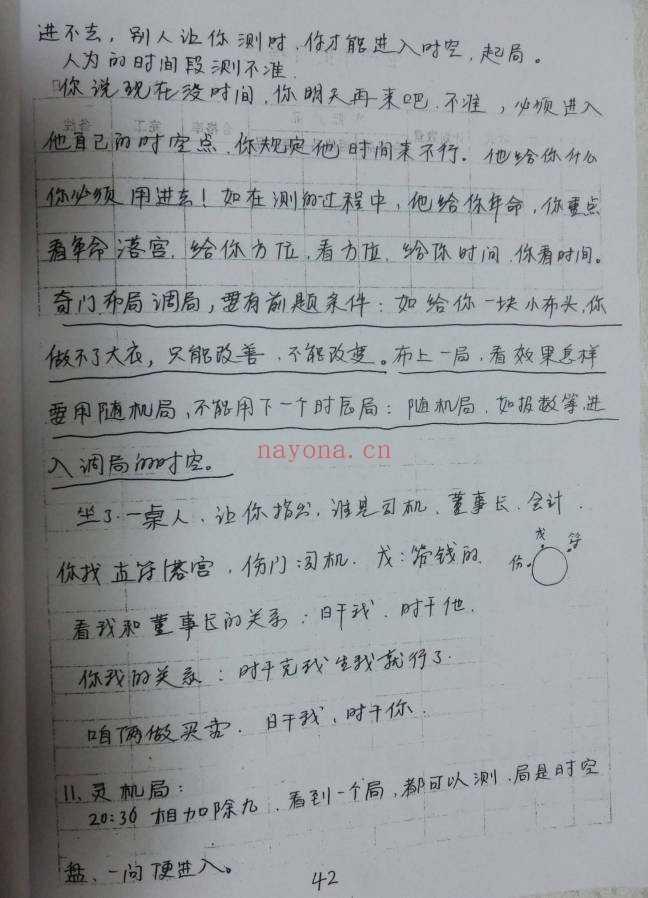 进不去，别人让你测时，你才能进入时空，起局。
人为的时间段测不准，
你说现在没时间，你明天再来吧，不准，必须进入
他自己的时空点，你规定他时间来不行。他给你什么
你必须用进去！如在测的过程中，他给你年命，你重点
看年命落宫，给你方位，看方位，给你时间，你看时间。
奇门布局调局，要有前题条件：如给你一块小布头，你
做不了大衣，只能改善，不能改变。布上一局，看效果怎样
要用随机局，不能用下一个时辰局：随机局，如报数等，进
入调局的时空。
nayona.cn
坐了一桌人，让你指出，谁是司机、董事长、会计．
你找直符落宫，伤门司机．戊：带钱的
戊 符
伤
看我和董事长的关系：日干我，时干他．
你我的关系：时干克我生我就行了．
咱俩做买卖．日干我，时干你．
11、灵机局：
20:36 相加除九，看到一个局，都可以测，局是时空
盘、一问便进入。
42